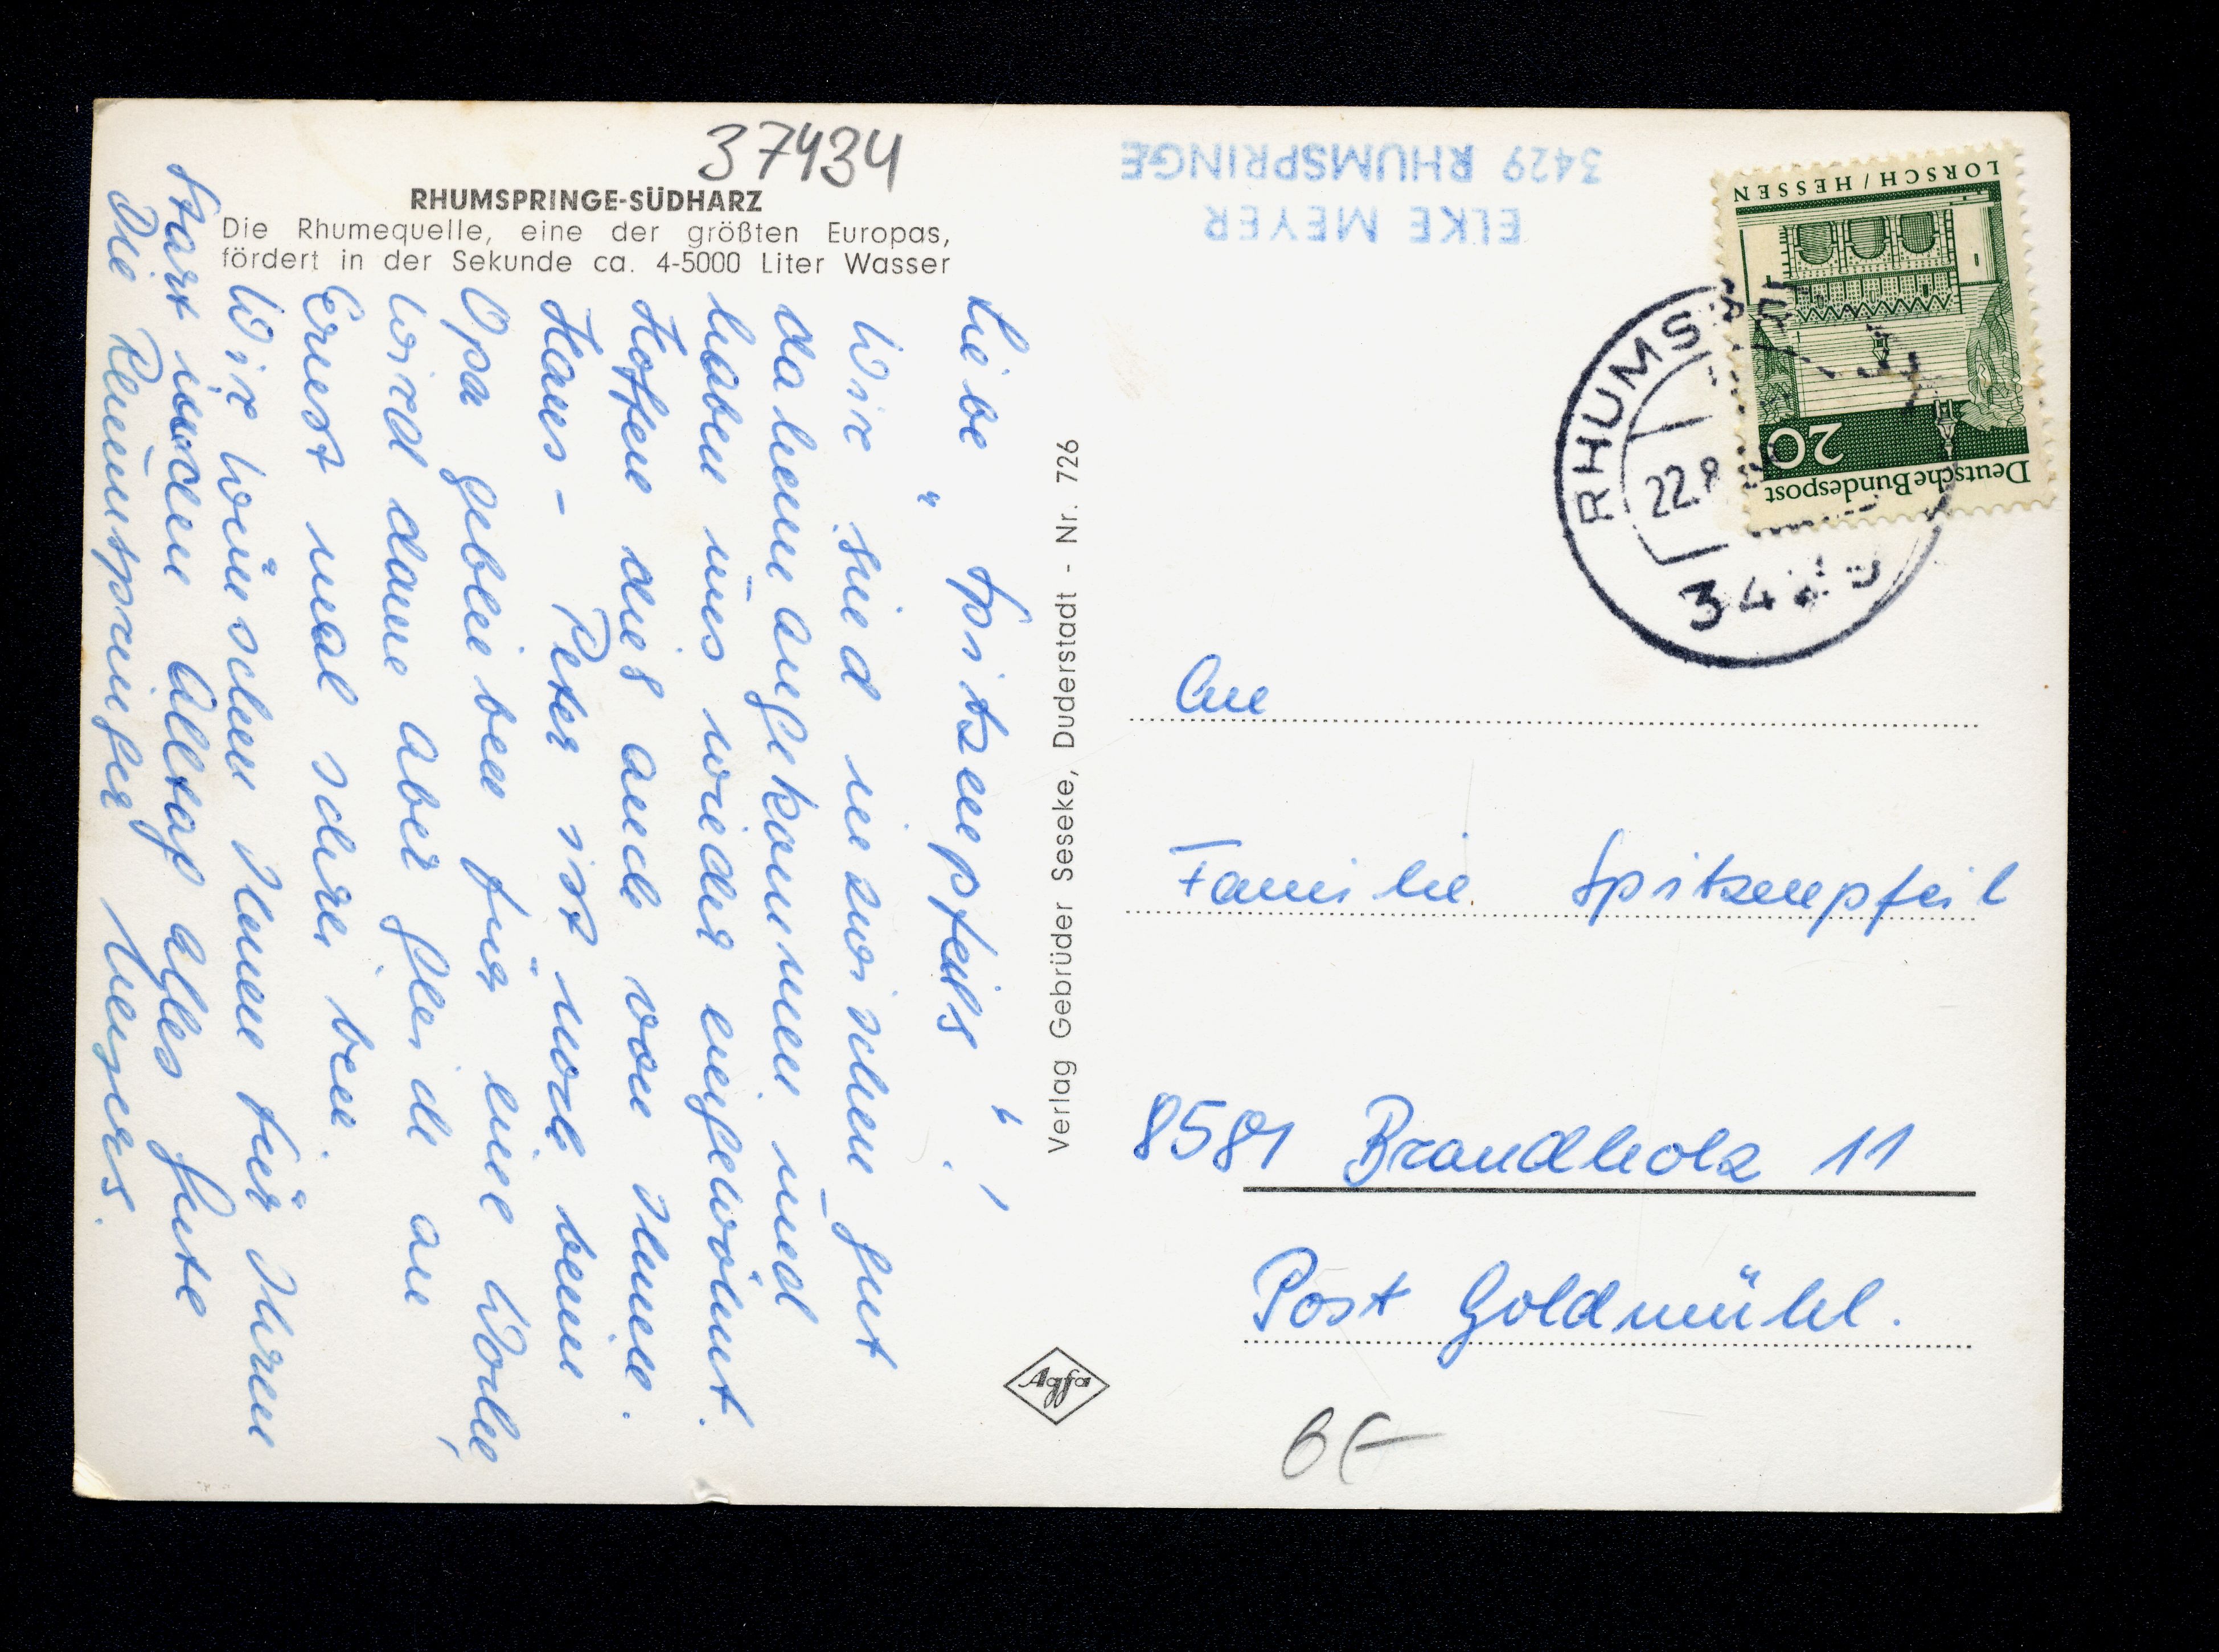 37434
RHUMSPRINGE-SÜDHARZ
Die Rhumequelle, eine der größten Europas,
fördert in der Sekunde ca. 4-5000 Liter Wasser
Liebe „Spitzenpfeils“!
Wir sind inzwischen gut
daheim angekommen und
haben uns wieder eingewöhnt.
Hoffen dies auch von Ihnen.
Hans-Peter ist noch beim
Opa geblieben für eine Woche,
wird dann aber gleich an
Ernst mal schreiben.
Wir wünschen Ihnen für Ihren
Start in den Alltag alles Gute
Die Rhumspringer Meyers.
Verlag Gebrüder Seseke, Duderstadt - Nr. 726
Agfa
3429 RHUMSPRINGE
ELKE MEYER
LORSCH / HESSEN
20
Deutsche Bundespost
RHUMS
22.8
3429
An
Familie Spitzenpfeil
8581 Brandholz 11
Post Goldmühl.